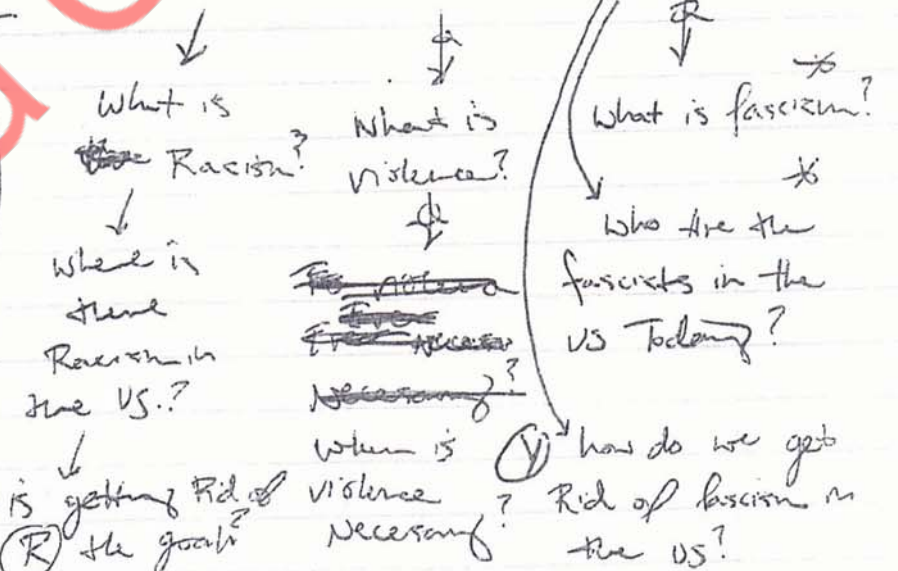 What is
Racism?
where is
there
Racism in
the US.?
is getting Rid of
(R) the goal?
What is
violence?
Is violence
Ever
Necessary?
when is
violence
Necessary?
What is fascism?
who are the
fascists in the
US Today?
(V) how do we get
Rid of fascism in
the US?